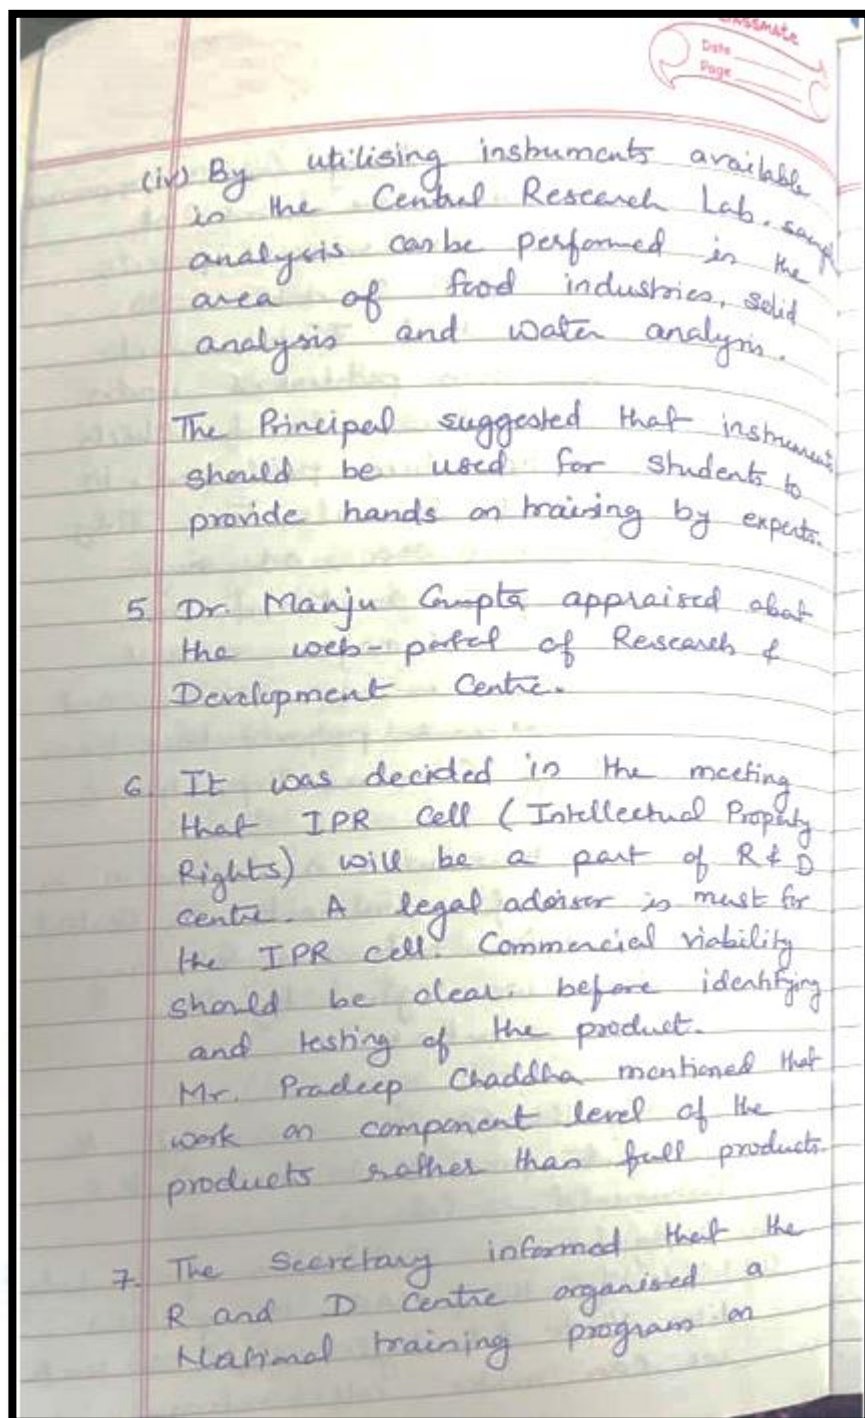 classmate
Date
Page
(iv) By utilising instruments available
in the Central Research Lab. sampl
analysis can be performed in the
area of food industries, solid
analysis and water analysis.
The Principal suggested that instruments
should be used for students to
provide hands on training by experts.
5 Dr. Manju Gupta appraised abot
the web-portal of Research &
Development Centre.
6 It was decided in the meeting
that IPR cell (Intellectual Property
Rights) will be a part of R & D
centre. A legal advisor is must for
the IPR cell. Commercial viability
should be clear before identifying
and testing of the product.
Mr. Pradeep Chaddha mentioned that
work on component level of the
products rather than full products.
7. The Secretary informed that the
R and D Centre organised a
National training program on